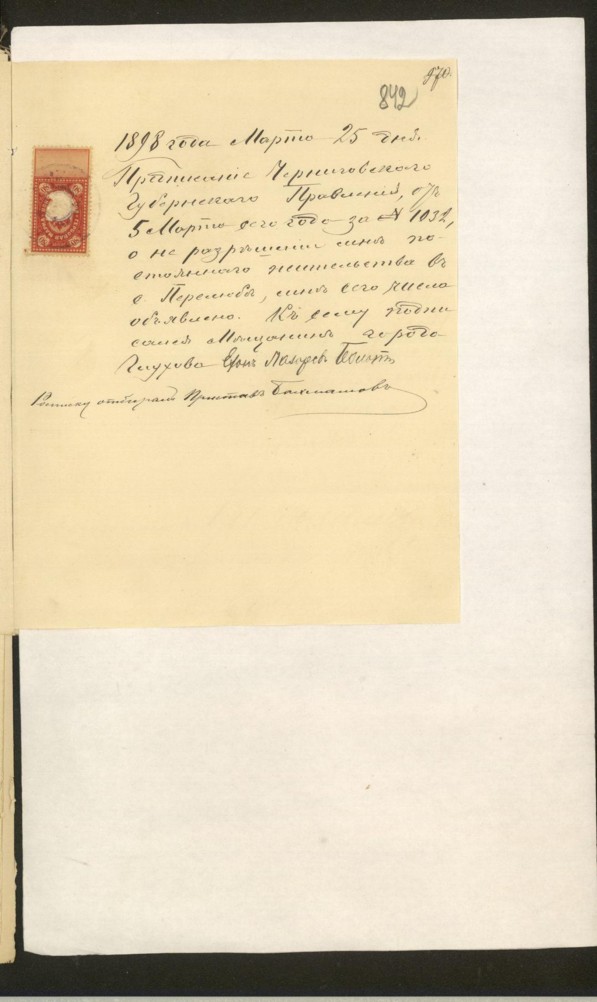 970.
842
1898 года Марта 25 дня.
Предписаніе Черниговскаго
Губернскаго Правленія, отъ
5 Марта сего года за № 1032,
о не разрѣшеніи мнѣ по-
стояннаго жительства въ
с Перелюбѣ, мнѣ сего числа
объявлено. Къ сему подпи
сался Мѣщанинъ города
Глухова
Росписку отбиралъ Приставъ